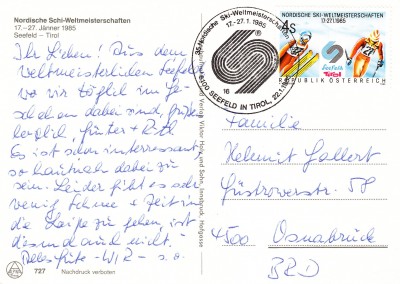 Nordische Schi-Weltmeisterschaften
17.–27. Jänner 1985
Seefeld – Tirol
Ihr Lieben! Aus dem
Weltmeisterlichen Seefeld
wo wir täglich im Ge-
schehen dabei sind, grüßen
herzlich Günter + Ruth
Es ist schon interressant
so hautnah dabei zu
sein. Leider gibt es sehr
wenig Schnee + Zeit in
die Loipe zu gehen, ist
diesmal auch nicht.
Alles Gute - WIR - s. o.
727 Nachdruck verboten
Verlag Viktor und Sohn, Innsbruck, Hofgasse
Nordische Ski-Weltmeisterschaften
17.-27.1.1985
6100 SEEFELD IN TIROL, 22.1.
16
NORDISCHE SKI-WELTMEISTERSCHAFTEN
17.-27.1.1985
S 4
Seefeld
Tirol
REPUBLIK ÖSTERREICH
Familie
Helmut Gallert
Güstrowerstr. 58
4500 Osnabrück
BRD